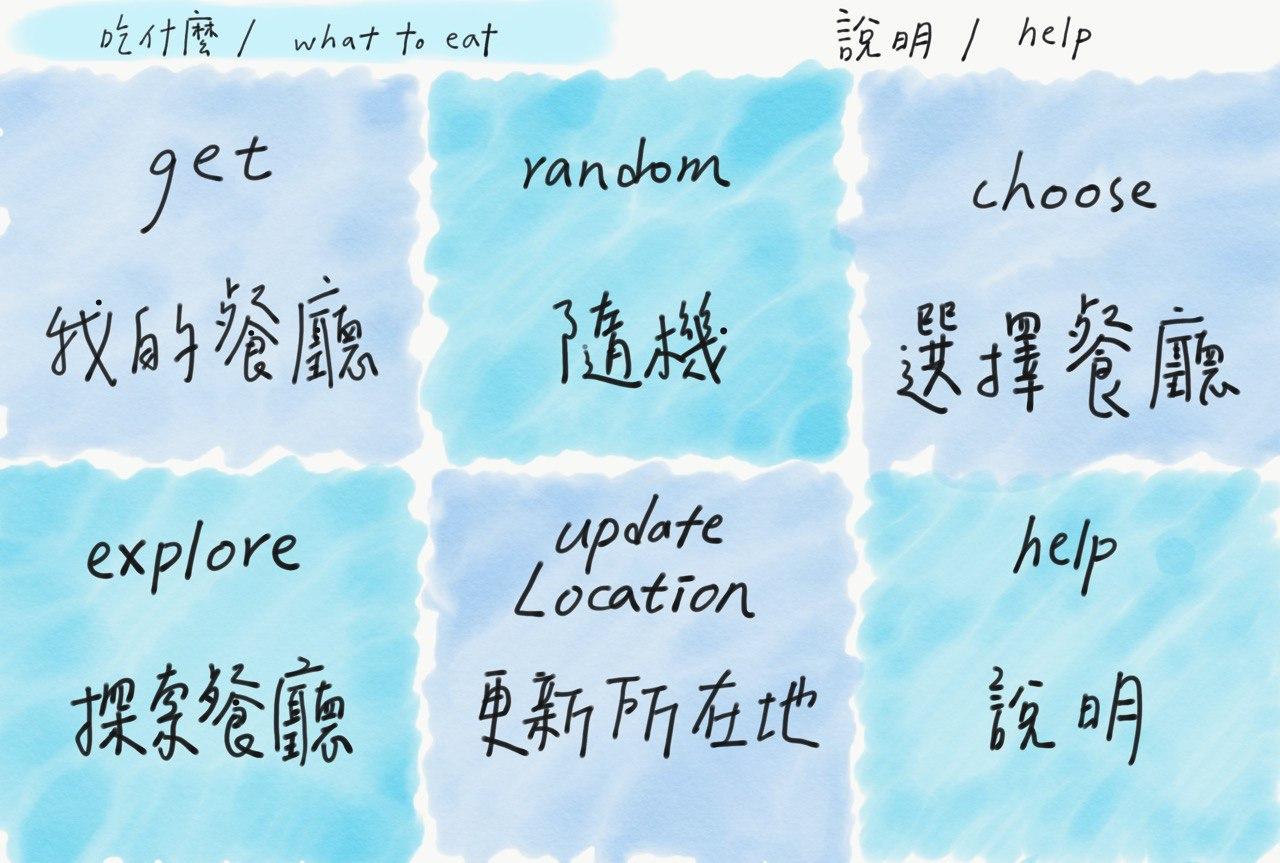 吃什麼 / what to eat
說明 / help
get
我的餐廳
random
隨機
choose
選擇餐廳
explore
探索餐廳
update
Location
更新所在地
help
說明